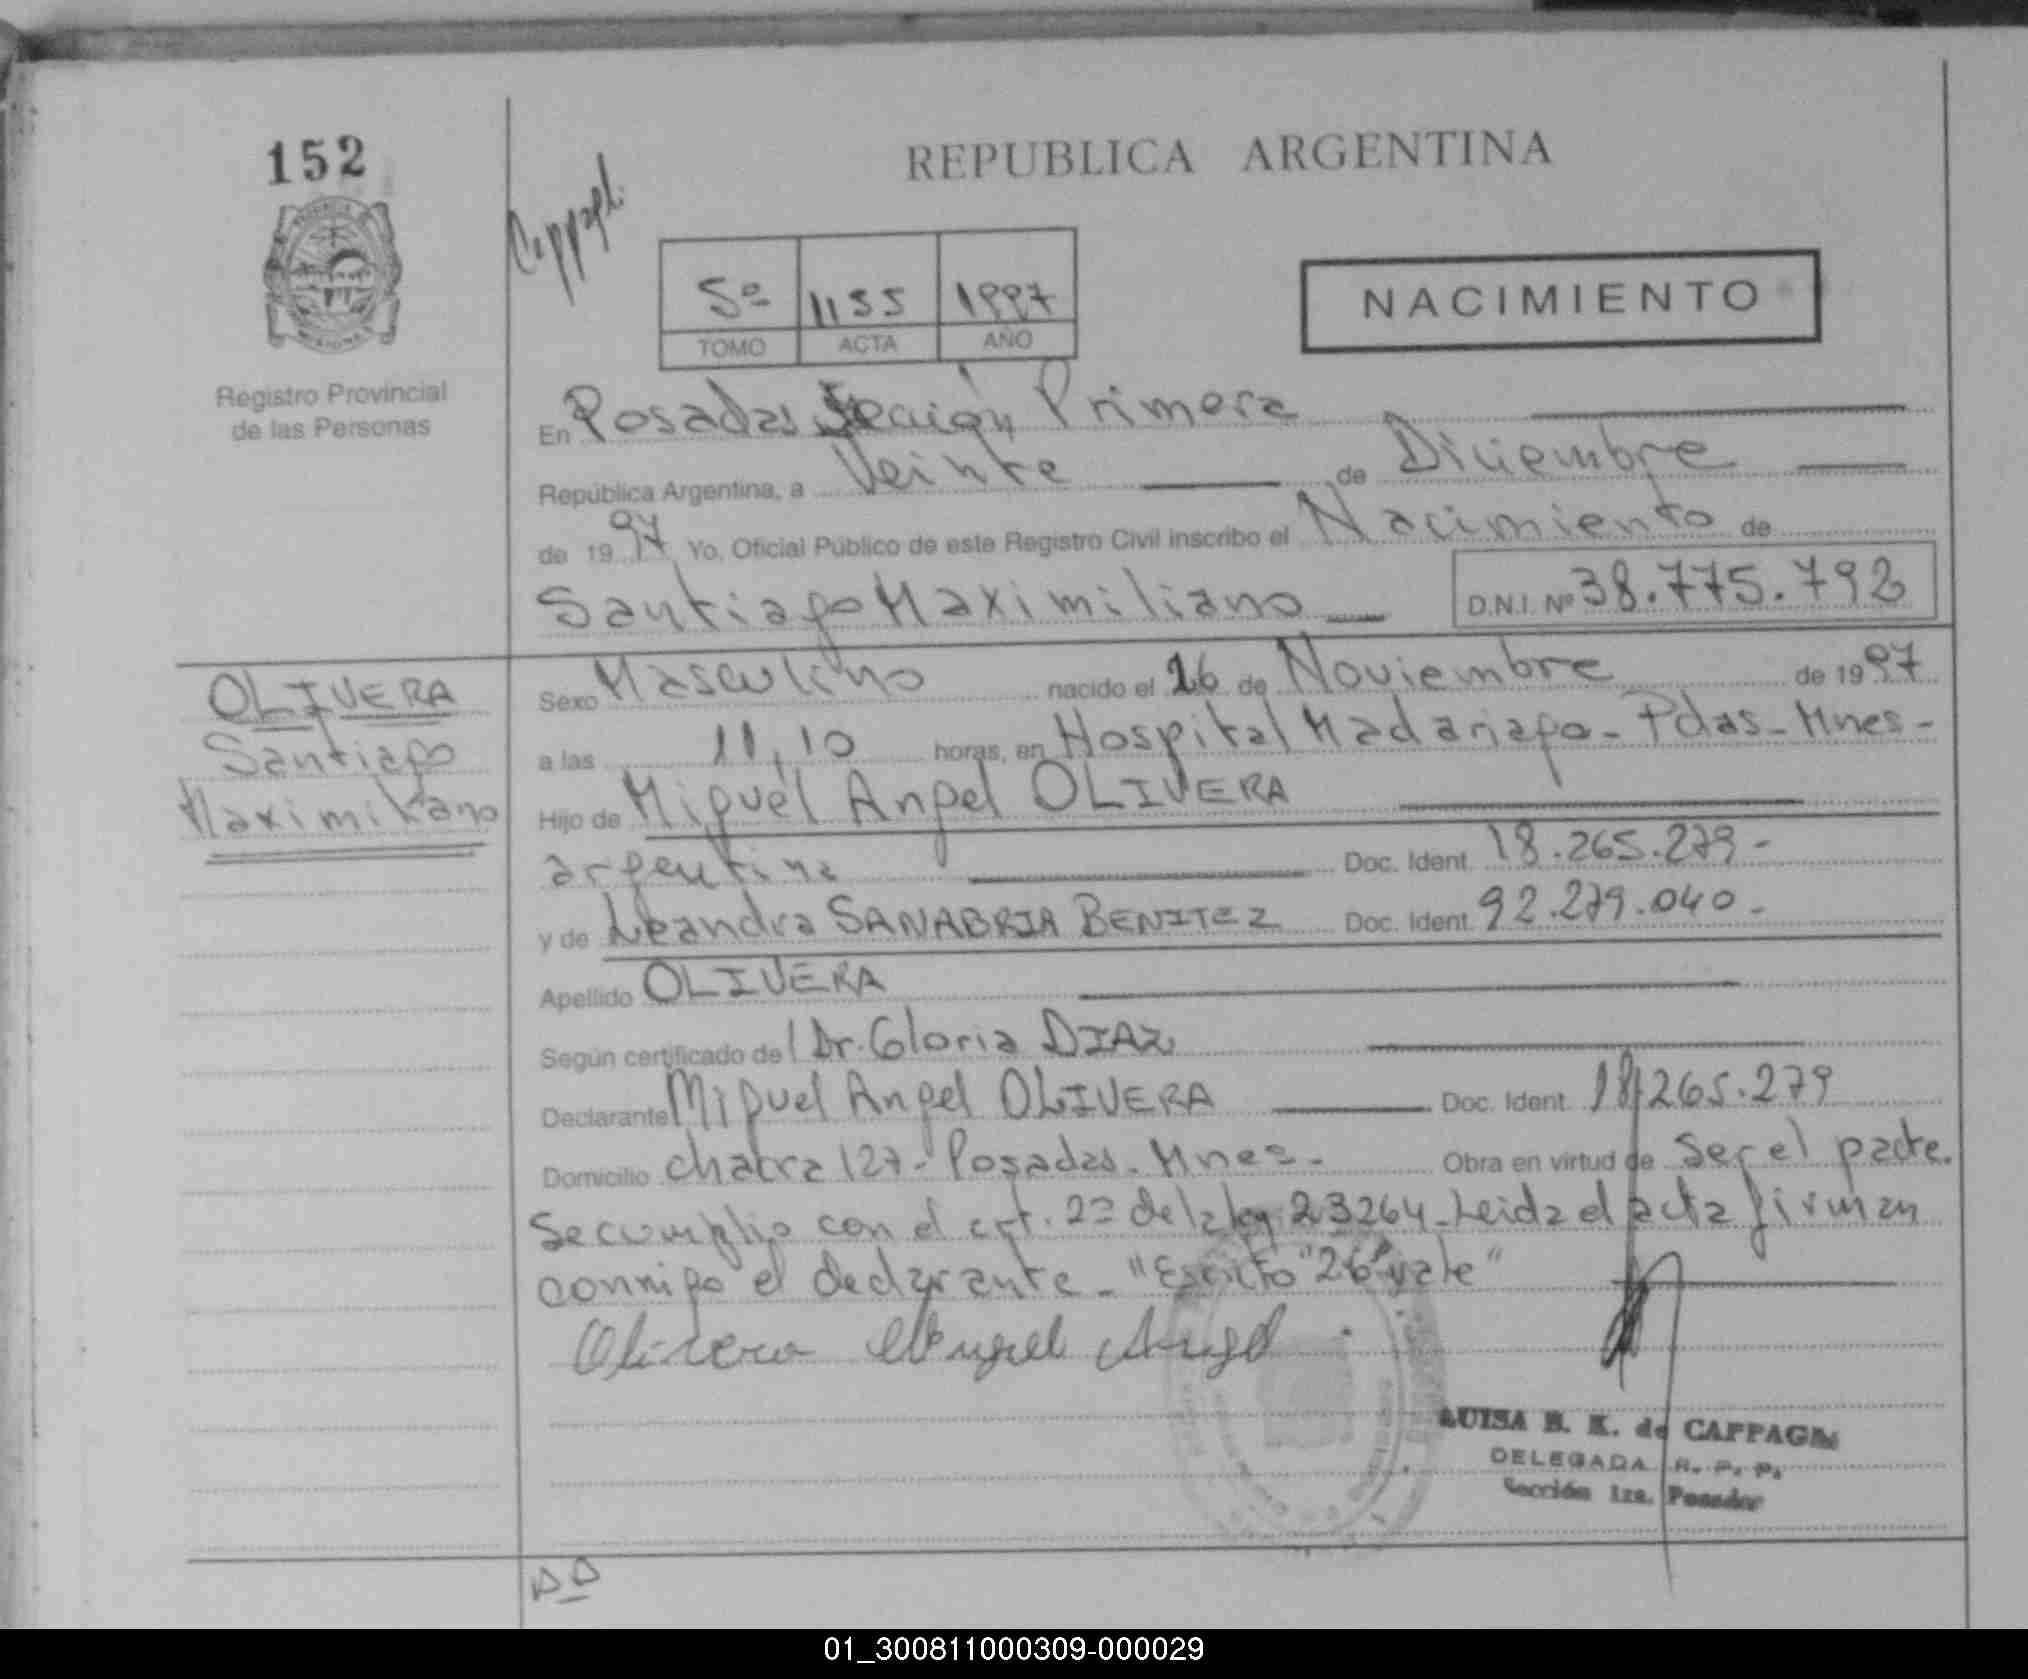 152
REPUBLICA ARGENTINA
5º 1155 1997
TOMO ACTA AÑO
NACIMIENTO
Registro Provincial
de las Personas
En Posadas Sección Primera
República Argentina, a Veinte de Diciembre
de 1997 Yo, Oficial Público de este Registro Civil inscribo el Nacimiento de
Santiago Maximiliano D.N.I. Nº 38.775.792
OLIVERA
Santiago
Maximiliano
Sexo Masculino nacido el 26 de Noviembre de 1997
a las 11,10 horas, en Hospital Madariaga - Pdas - Mnes -
Hijo de Miguel Angel OLIVERA
argentina Doc. Ident. 18.265.279 -
y de Leandra SANABRIA BENITEZ Doc. Ident. 92.279.040 -
Apellido OLIVERA
Según certificado de Dr. Gloria DIAZ
Declarante Miguel Angel OLIVERA Doc. Ident. 18.265.279
Domicilio chacra 127 - Posadas - Mnes - Obra en virtud de ser el padre.
Se cumplio con el art. 2º de la ley 23264 - Leida el acta firman
conmigo el declarante - "Escrito "26" vale"
Olivera Miguel Angel
LUISA B. K. de CAPPAGLI
DELEGADA R. P. P.
Sección 1ra. Posadas
01_300811000309-000029